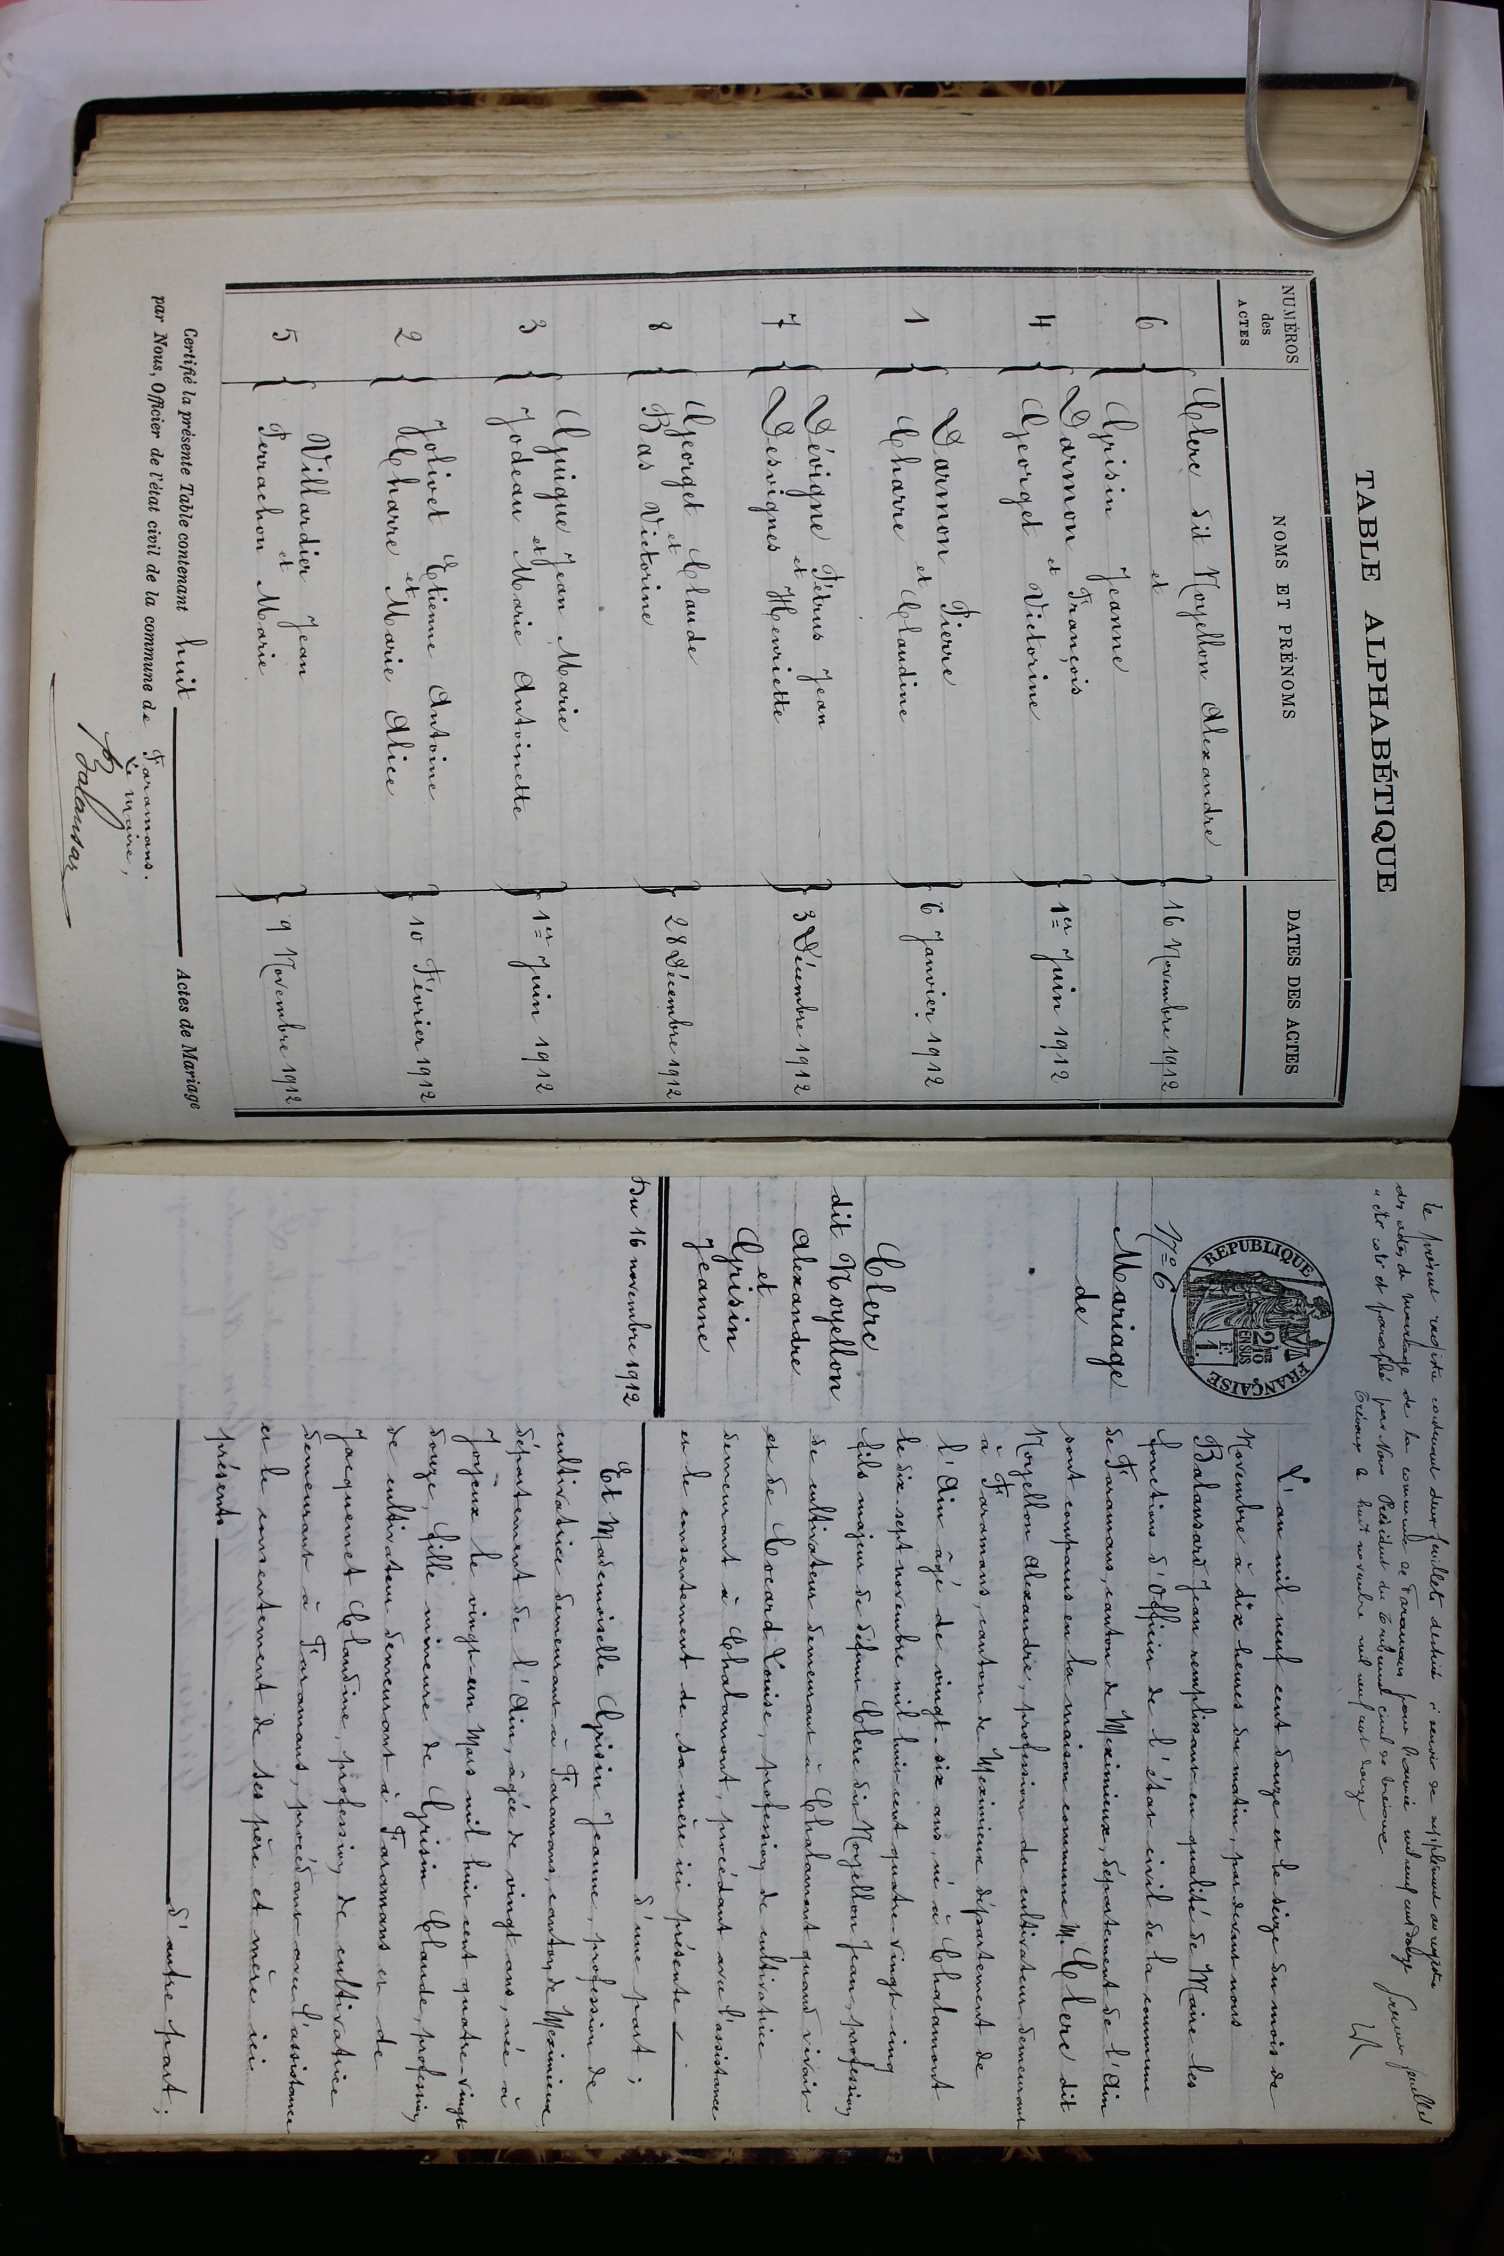 TABLE ALPHABÉTIQUE
NUMÉROS des ACTES
NOMS ET PRÉNOMS
DATES DES ACTES
6
Clerc dit Noyellon Alexandre
et
Grisin Jeanne
16 Novembre 1912
4
Darmon François
et
Georget Victorine
1er Juin 1912
1
Darmon Pierre
et
Charre Claudine
6 Janvier 1912
7
Dévigne Pétrus Jean
et
Desvignes Henriette
3 Décembre 1912
8
Georget Claude
et
Bas Victorine
28 Décembre 1912
3
Guigue Jean Marie
et
Jodeau Marie Antoinette
1er Juin 1912
2
Jolivet Etienne Antoine
et
Charre Marie Alice
10 Février 1912
5
Villardier Jean
et
Perrachon Marie
9 Novembre 1912
Certifié la présente Table contenant huit Actes de Mariage
par Nous, Officier de l'état civil de la commune de Faramans.
Le Maire,
Balansar
Le présent registre contenant deux feuillets destiné à servir de supplément au registre
des actes de mariage de la commune de Faramans pour l'année mil neuf cent douze
a été coté et paraphé par Nous Président du Tribunal civil de Trévoux
Trévoux le huit novembre mil neuf cent douze
Premier feuillet
REPUBLIQUE FRANÇAISE
2/10 EN SUS
1 F.
N° 6
Mariage
de
Clerc
dit Noyellon
Alexandre
et
Grisin
Jeanne
Du 16 novembre 1912
L'an mil neuf cent douze et le seize du mois de
Novembre à dix heures du matin, par devant nous
Balansard Jean remplissant en qualité de Maire les
fonctions d'Officier de l'état civil de la commune
de Faramans, canton de Meximieux, département de l'Ain
sont comparus en la maison commune M. Clerc dit
Noyellon Alexandre, profession de cultivateur demeurant
à Faramans, canton de Meximieux département de
l'Ain âgé de vingt-six ans, né à Chalamont
le dix-sept novembre mil huit cent quatre-vingt-cinq
fils majeur de défunt Clerc dit Noyellon Jean, profession
de cultivateur demeurant à Chalamont quand vivait
et de Cocard Louise, profession de cultivatrice
demeurant à Chalamont, procédant avec l'assistance
et le consentement de sa mère ici présente
d'une part;
Et Mademoiselle Grisin Jeanne, profession de
cultivatrice demeurant à Faramans, canton de Meximieux
département de l'Ain, âgée de vingt ans, née à
Joyeux le vingt-un Mars mil huit cent quatre-vingt
douze, fille mineure de Grisin Claude, profession
de cultivateur demeurant à Faramans et de
Jacquemet Claudine, profession de cultivatrice
demeurant à Faramans, procédant avec l'assistance
et le consentement de ses père et mère ici
présents
d'autre part;